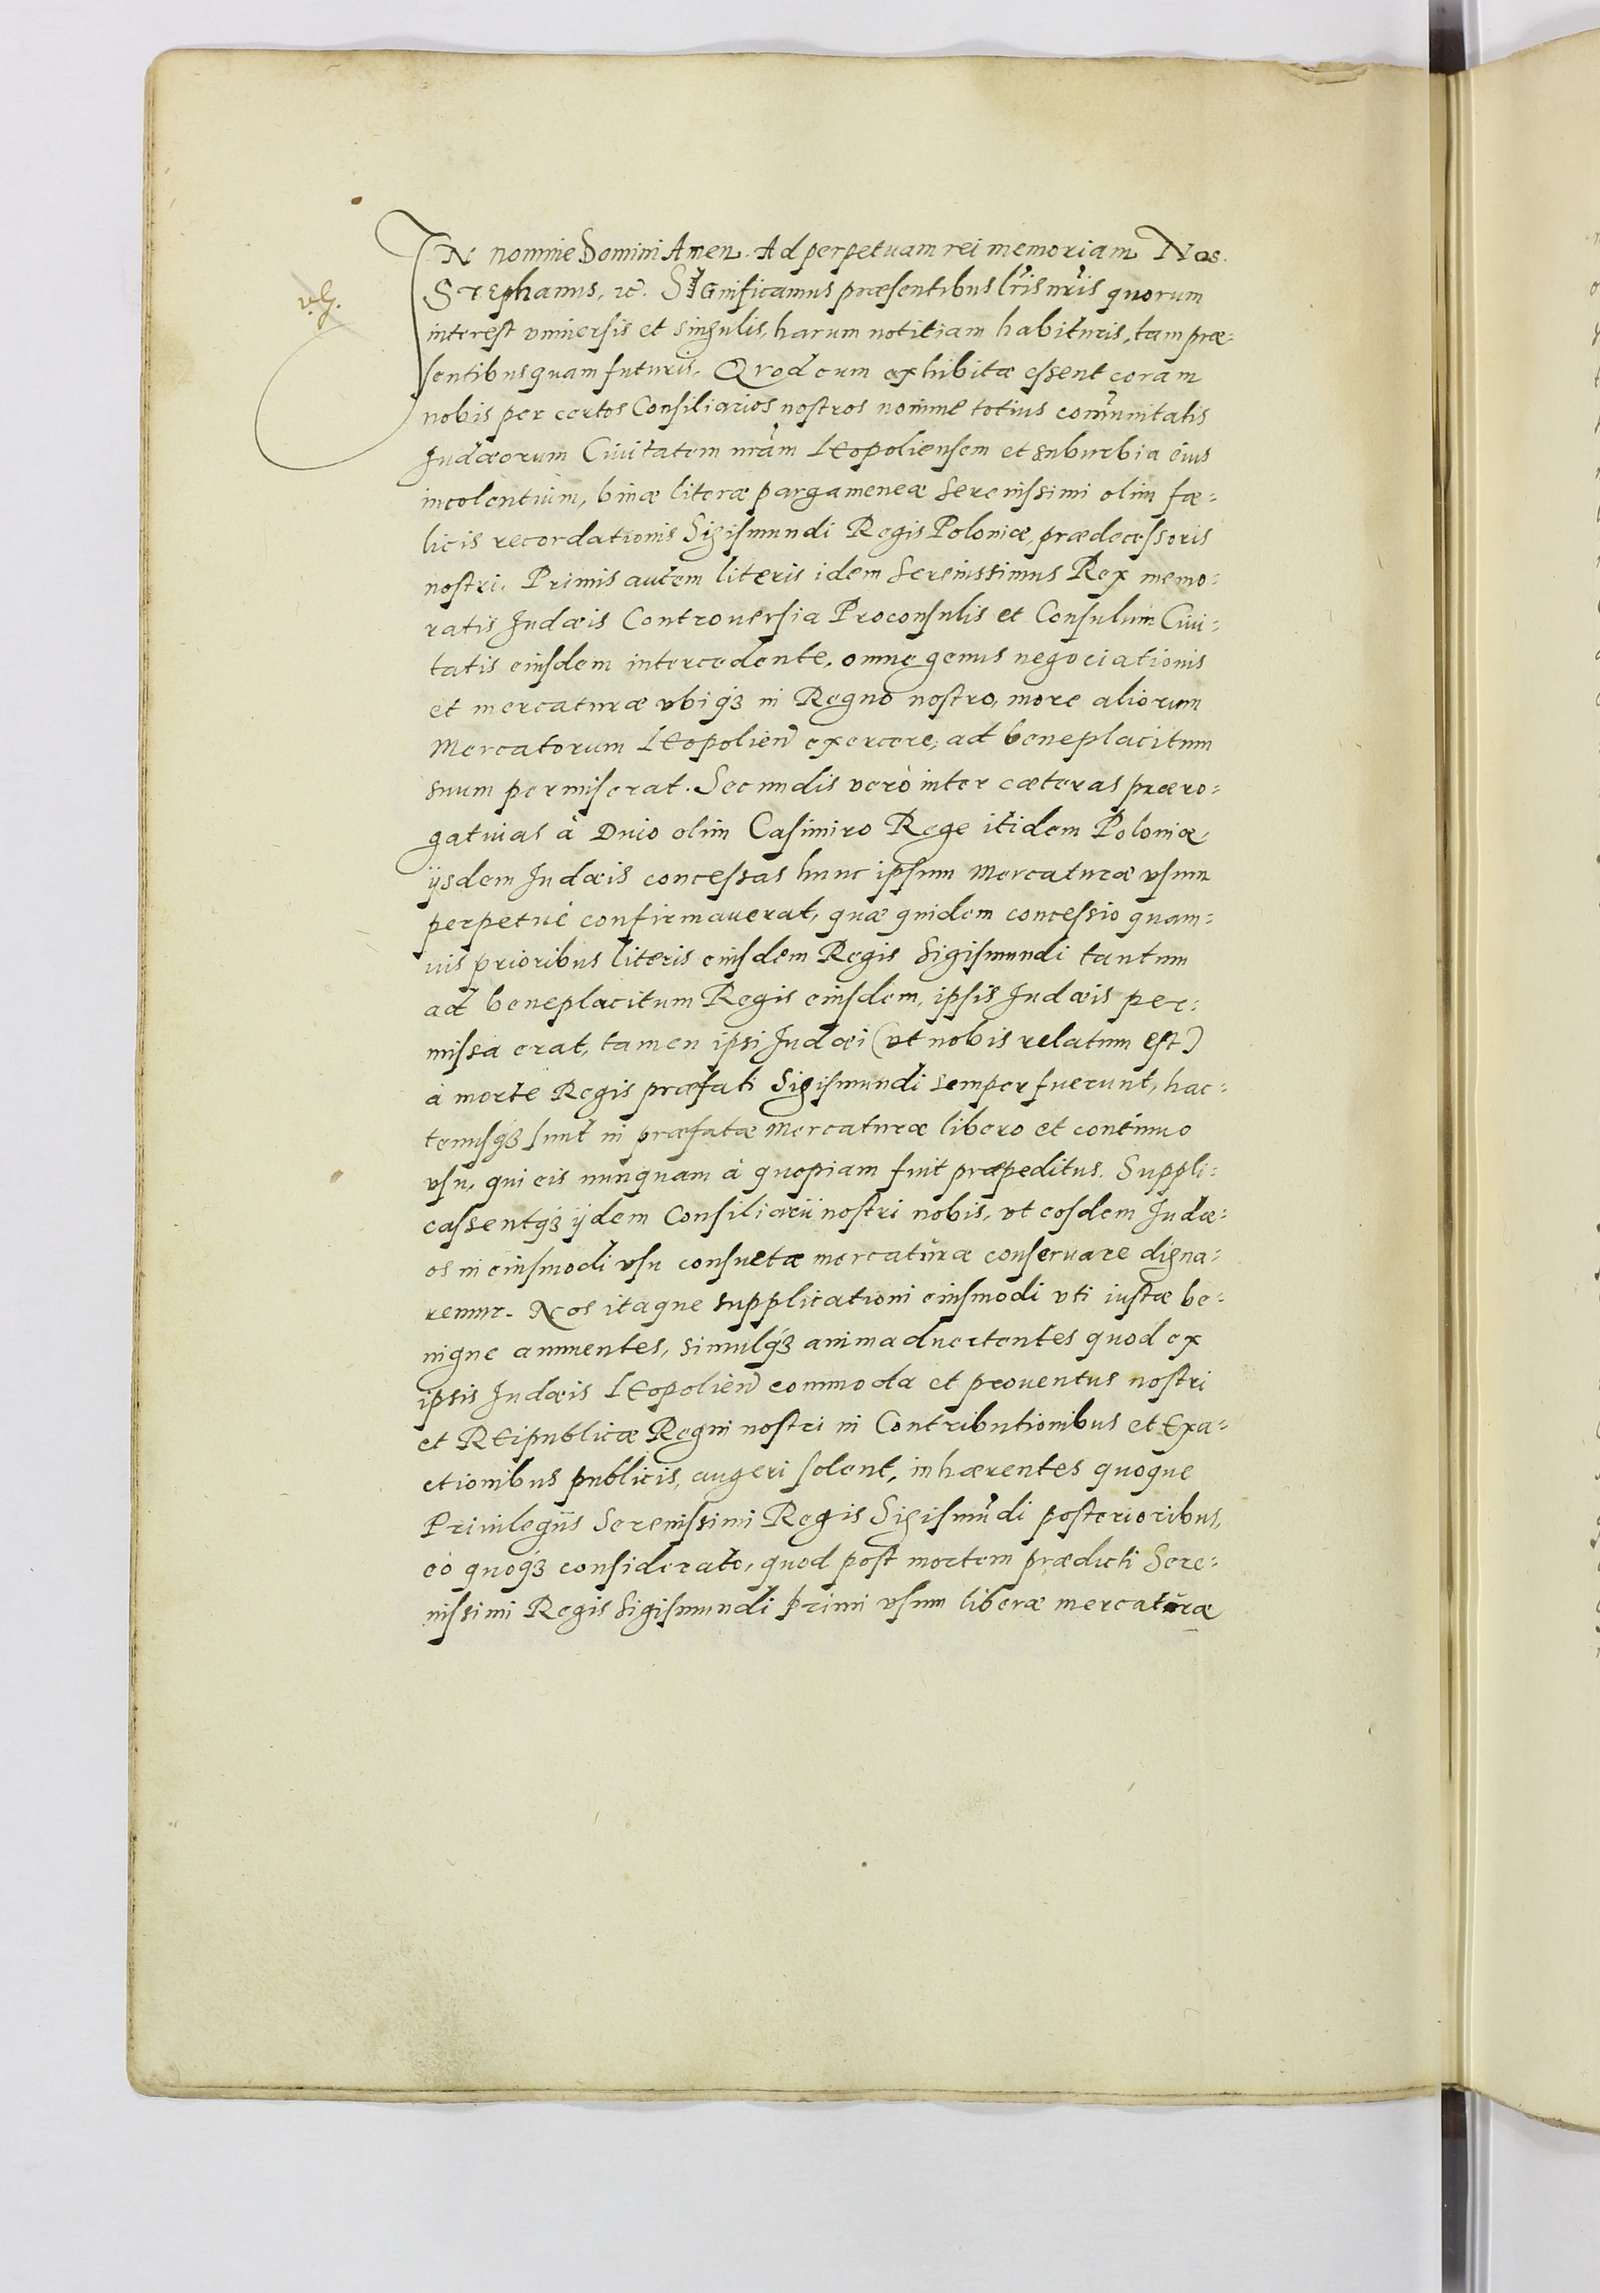 IN nomine Domini Amen. Ad perpetuam rei memoriam Nos.
STEphanus, ec̃. SIGnificamus præsentibus lr̃is nr̃is quorum
interest vniuersis et singulis, harum notitiam habituris, tam præ=
sentibus quam futuris. Qvod cum exhibitæ essent coram
nobis per certos Consiliarios nostros nomine totius com̃unitatis
Judæorum Ciuitatem nr̃am LEopoliensem et suburbia eius
incolentium, binæ literæ pargameneæ Serenissimi olim fœ=
licis recordationis Sigismundi Regis Poloniæ, prædecessoris
nostri. Primis autem literis idem Serenissimus Rex memo=
ratis Judæis Controuersia Proconsulis et Consulum Ciui=
tatis eiusdem intercedente, omne genus negociationis
et mercaturæ vbiq́ꝫ in Regno nostro, more aliorum
Mercatorum LEopolien̄ exercere, ad beneplacitum
suum permiserat. Secundis verò inter cæteras præro=
gatiuas à Diuo olim Casimiro Rege itidem Poloniæ,
ijsdem Judæis concessas hunc ipsum Mercaturæ vsum
perpetuè confirmauerat, quæ quidem concessio quam=
uis prioribus literis eiusdem Regis Sigismundi tantum
ad beneplacitum Regis eiusdem, ipsis Judæis per=
missa erat, tamen ipsi Judæi (vt nobis relatum est)
à morte Regis præfati Sigismundi semper fuerunt, hac=
tenusq́ꝫ sunt in præfatæ Mercaturæ libero et continuo
vsu, qui eis nunquam à quopiam fuit præpeditus. Suppli=
cassentq́ꝫ ijdem Consiliarii nostri nobis, vt eosdem Judæ=
os in eiusmodi vsu consuetæ mercaturæ conseruare digna=
remur. Nos itaque supplicationi eiusmodi vti iustæ be=
nigne annuentes, simulq́ꝫ animaduertentes quod ex
ipsis Judæis LEopolien̄ commoda et prouentus nostri
et REipublicæ Regni nostri in Contributionibus et Exa=
ctionibus publicis, augeri solent, inhærentes quoque
Priuilegiis Serenissimi Regis Sigismūdi posterioribus,
eò quoq́ꝫ considerato, quod post mortem prædicti Sere=
nissimi Regis Sigismundi primi vsum liberæ mercaturæ